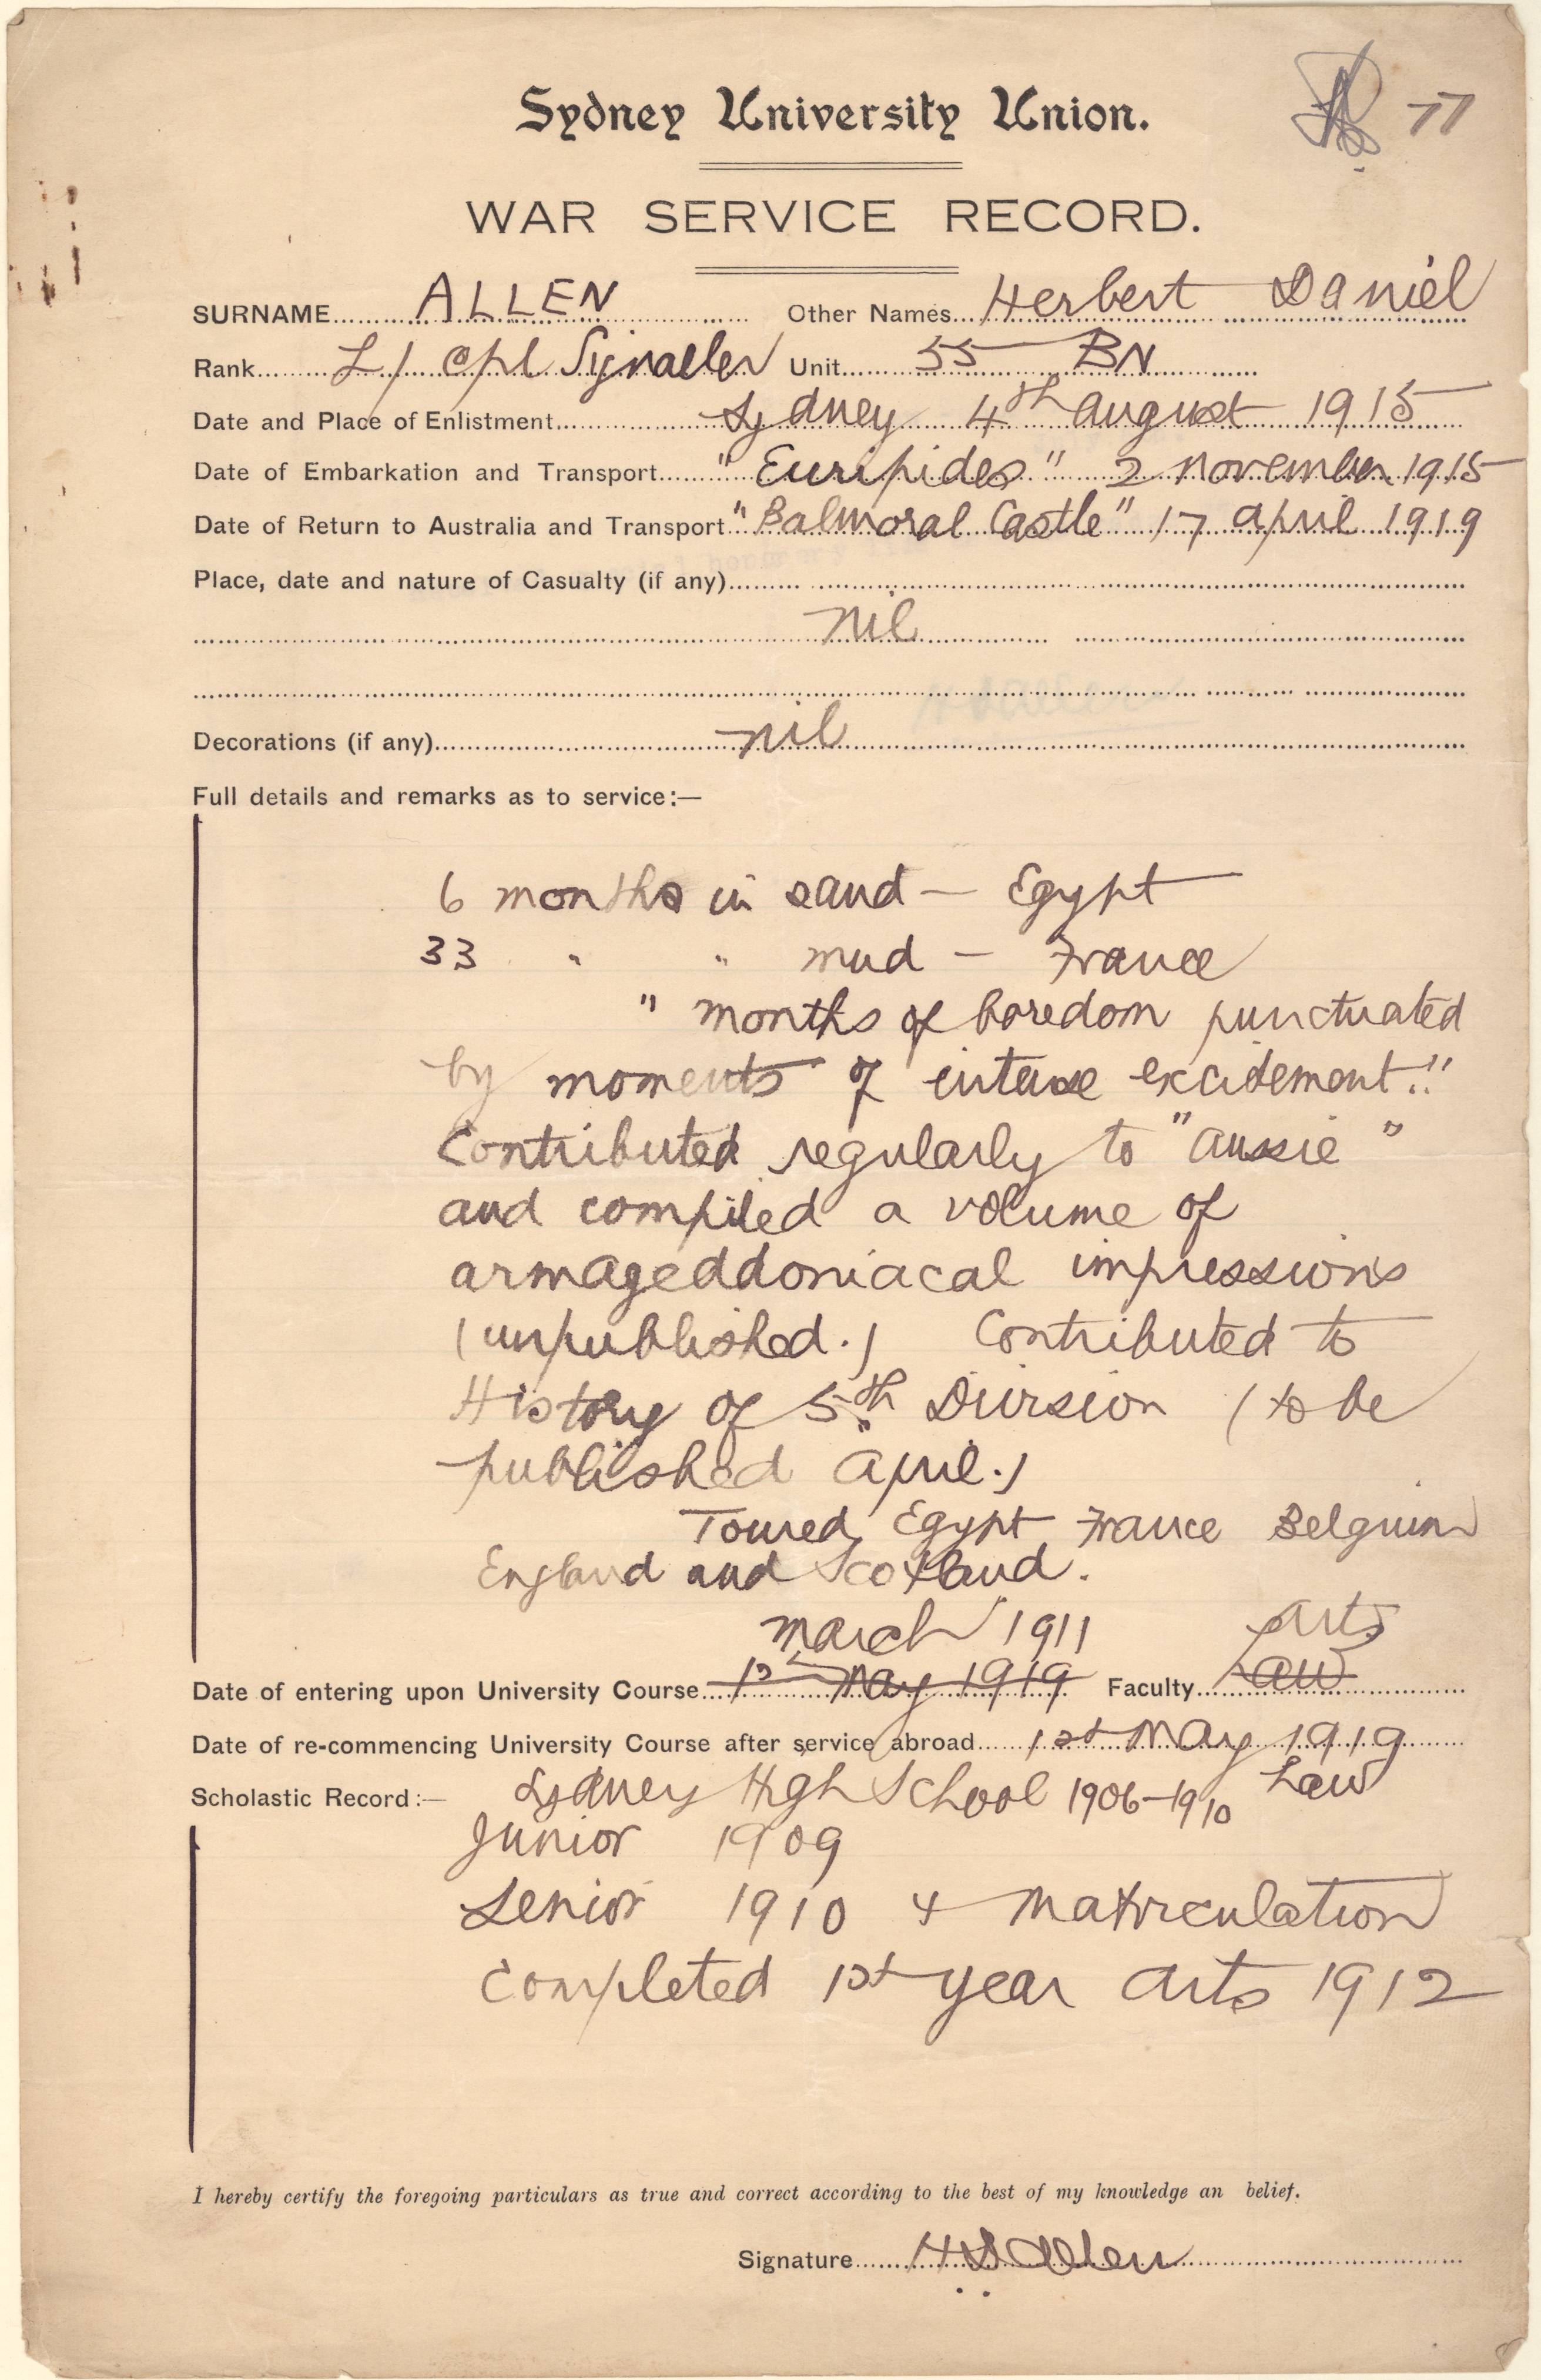 Sydney University Union. 77
WAR SERVICE RECORD.
SURNAME ALLEN Other Names Herbert Daniel
Rank L/ Cpl Signaller Unit 55 BN
Date and Place of Enlistment Sydney 4th August 1915
Date of Embarkation and Transport "Euripides" 2 November 1915
Date of Return to Australia and Transport "Balmoral Castle" 17 April 1919
Place, date and nature of Casualty (if any)
nil
Decorations (if any) nil
Full details and remarks as to service:—
6 months in sand — Egypt
33 " " mud — France
" months of boredom punctuated
by moments of intense excitement!!
Contributed regularly to "Aussie"
and compiled a volume of
armageddoniacal impressions
(unpublished.) Contributed to
History of 5th Division (to be
published April.)
Toured Egypt France Belgium
England and Scotland.
March 1911 Arts
Date of entering upon University Course 1st May 1919 Faculty Law
Date of re-commencing University Course after service abroad 1st May 1919
Scholastic Record:— Sydney High School 1906–1910 Law
Junior 1909
Senior 1910 & Matriculation
Completed 1st year Arts 1912
I hereby certify the foregoing particulars as true and correct according to the best of my knowledge an belief.
Signature H D Allen